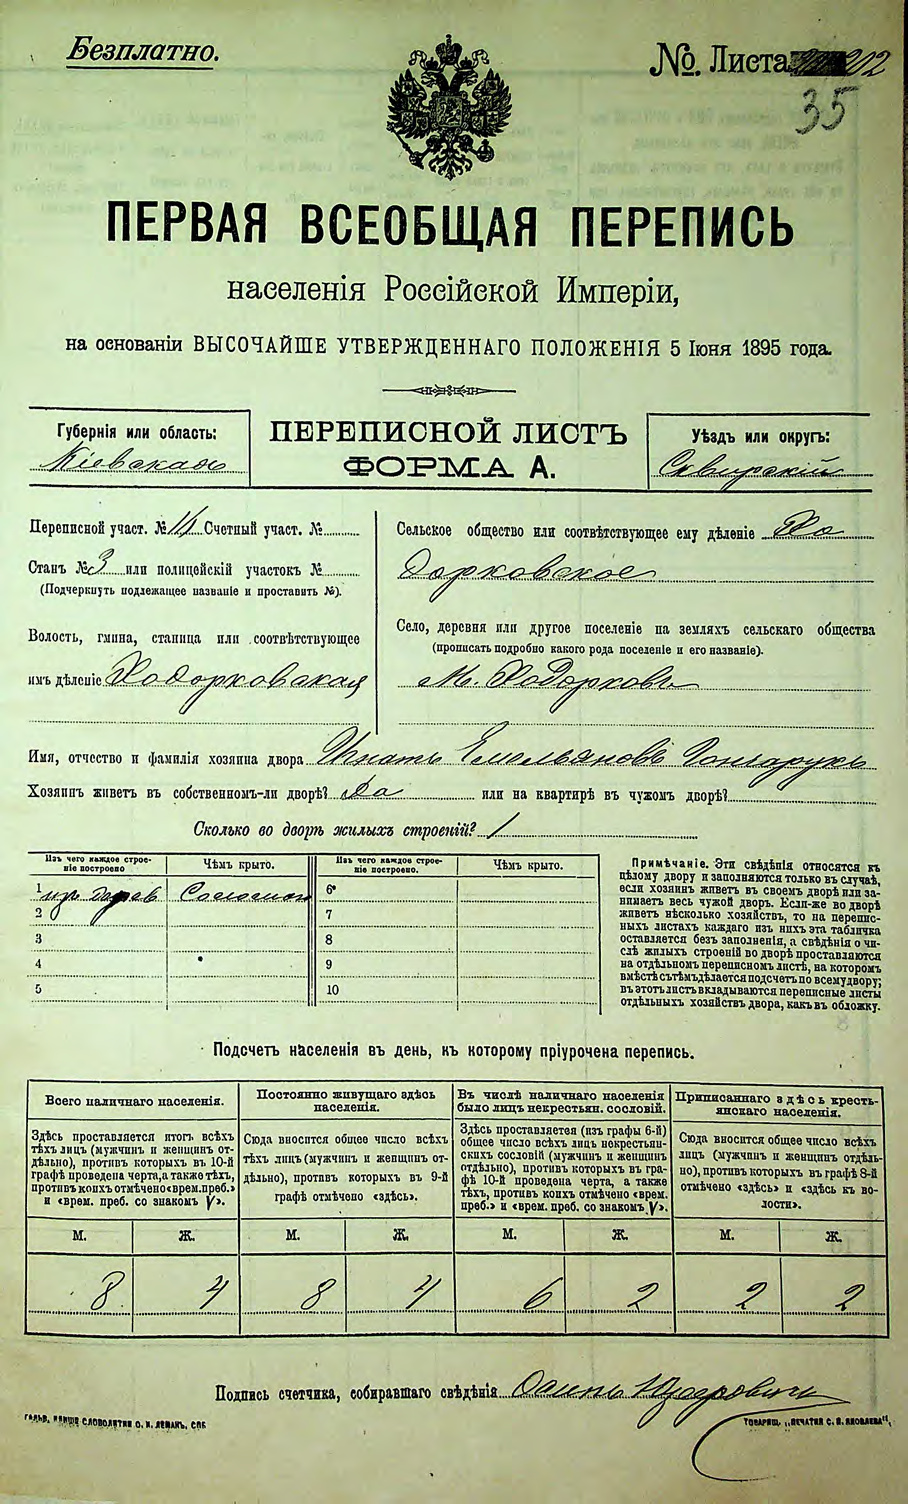 Безплатно.
№. Листа 202
35
ПЕРВАЯ ВСЕОБЩАЯ ПЕРЕПИСЬ
населенія Россійской Имперіи,
на основаніи ВЫСОЧАЙШЕ УТВЕРЖДЕННАГО ПОЛОЖЕНІЯ 5 Іюня 1895 года.
Губернія или область:
Кіевская
ПЕРЕПИСНОЙ ЛИСТЪ
ФОРМА А.
Уѣздъ или округъ:
Сквирскій
Переписной участ. № 14 Счетный участ. №
Станъ № 3 или полицейскій участокъ №
(Подчеркнуть подлежащее названіе и проставить №).
Волость, гмина, станица или соотвѣтствующее
имъ дѣленіе Ходорковская
Сельское общество или соотвѣтствующее ему дѣленіе Хо
дорковское
Село, деревня или другое поселеніе на земляхъ сельскаго общества
(прописать подробно какого рода поселеніе и его названіе).
М. Ходорковъ
Имя, отчество и фамилія хозяина двора Игнатъ Емельяновъ Гончарукъ
Хозяинъ живетъ въ собственномъ-ли дворѣ? Да или на квартирѣ въ чужомъ дворѣ?
Сколько во дворѣ жилыхъ строеній? 1
Изъ чего каждое строе-
ніе построено
Чѣмъ крыто.
Изъ чего каждое строе-
ніе построено.
Чѣмъ крыто.
1 изъ дерев Соломою 6
2 7
3 8
4 9
5 10
Примѣчаніе. Эти свѣдѣнія относятся къ
цѣлому двору и заполняются только въ случаѣ,
если хозяинъ живетъ въ своемъ дворѣ или за-
нимаетъ весь чужой дворъ. Если-же во дворѣ
живетъ нѣсколько хозяйствъ, то на перепис-
ныхъ листахъ каждаго изъ нихъ эта табличка
оставляется безъ заполненія, а свѣдѣнія о чи-
слѣ жилыхъ строеній во дворѣ проставляются
на отдѣльномъ переписномъ листѣ, на которомъ
вмѣстѣ съ тѣмъ дѣлается подсчетъ по всему двору;
въ этотъ листъ вкладываются переписные листы
отдѣльныхъ хозяйствъ двора, какъ въ обложку.
Подсчетъ населенія въ день, къ которому пріурочена перепись.
Всего наличнаго населенія.
Здѣсь проставляется итогъ всѣхъ
тѣхъ лицъ (мужчинъ и женщинъ от-
дѣльно), противъ которыхъ въ 10-й
графѣ проведена черта, а также тѣхъ,
противъ коихъ отмѣчено «врем. преб.»
и «врем. преб. со знакомъ V».
Постоянно живущаго здѣсь
населенія.
Сюда вносится общее число всѣхъ
тѣхъ лицъ (мужчинъ и женщинъ от-
дѣльно), противъ которыхъ въ 9-й
графѣ отмѣчено «здѣсь».
Въ числѣ наличнаго населенія
было лицъ некрестьян. сословій.
Здѣсь проставляется (изъ графы 6-й)
общее число всѣхъ лицъ некрестьян-
скихъ сословій (мужчинъ и женщинъ
отдѣльно), противъ которыхъ въ гра-
фѣ 10-й проведена черта, а также
тѣхъ, противъ коихъ отмѣчено «врем.
преб.» и «врем. преб. со знакомъ V».
Приписаннаго здѣсь кресть-
янскаго населенія.
Сюда вносится общее число всѣхъ
лицъ (мужчинъ и женщинъ отдѣль-
но), противъ которыхъ въ графѣ 8-й
отмѣчено «здѣсь» и «здѣсь къ во-
лости».
М. Ж. М. Ж. М. Ж. М. Ж.
8 4 8 4 6 2 2 2
Подпись счетчика, собиравшаго свѣдѣнія
СЛОВОЛИТНИ О. И. ЛЕМАНЪ, СПБ
ТОВАРИЩ. „ПЕЧАТНЯ С. П. ЯКОВЛЕВА“,